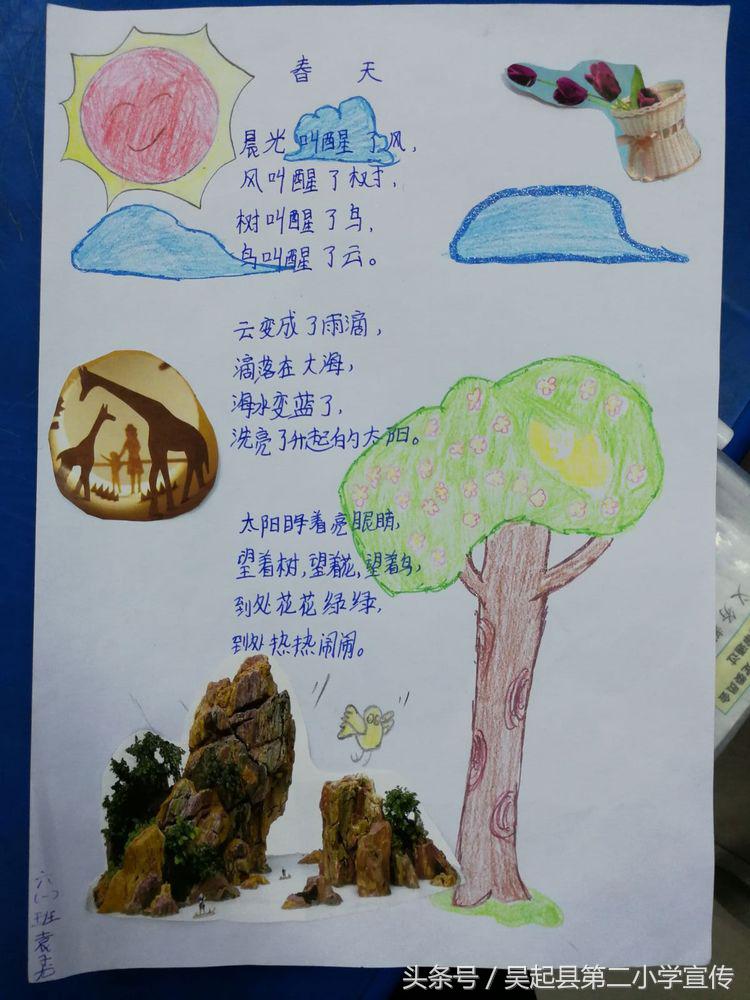 春 天
晨光叫醒了风,
风叫醒了树,
树叫醒了鸟,
鸟叫醒了云。
云变成了雨滴,
滴落在大海,
海水变蓝了,
洗亮了升起的太阳。
太阳睁着亮眼睛,
望着树,望着花,望着鸟,
到处花花绿绿,
到处热热闹闹。
六(一)班袁
头条号/吴起县第二小学宣传